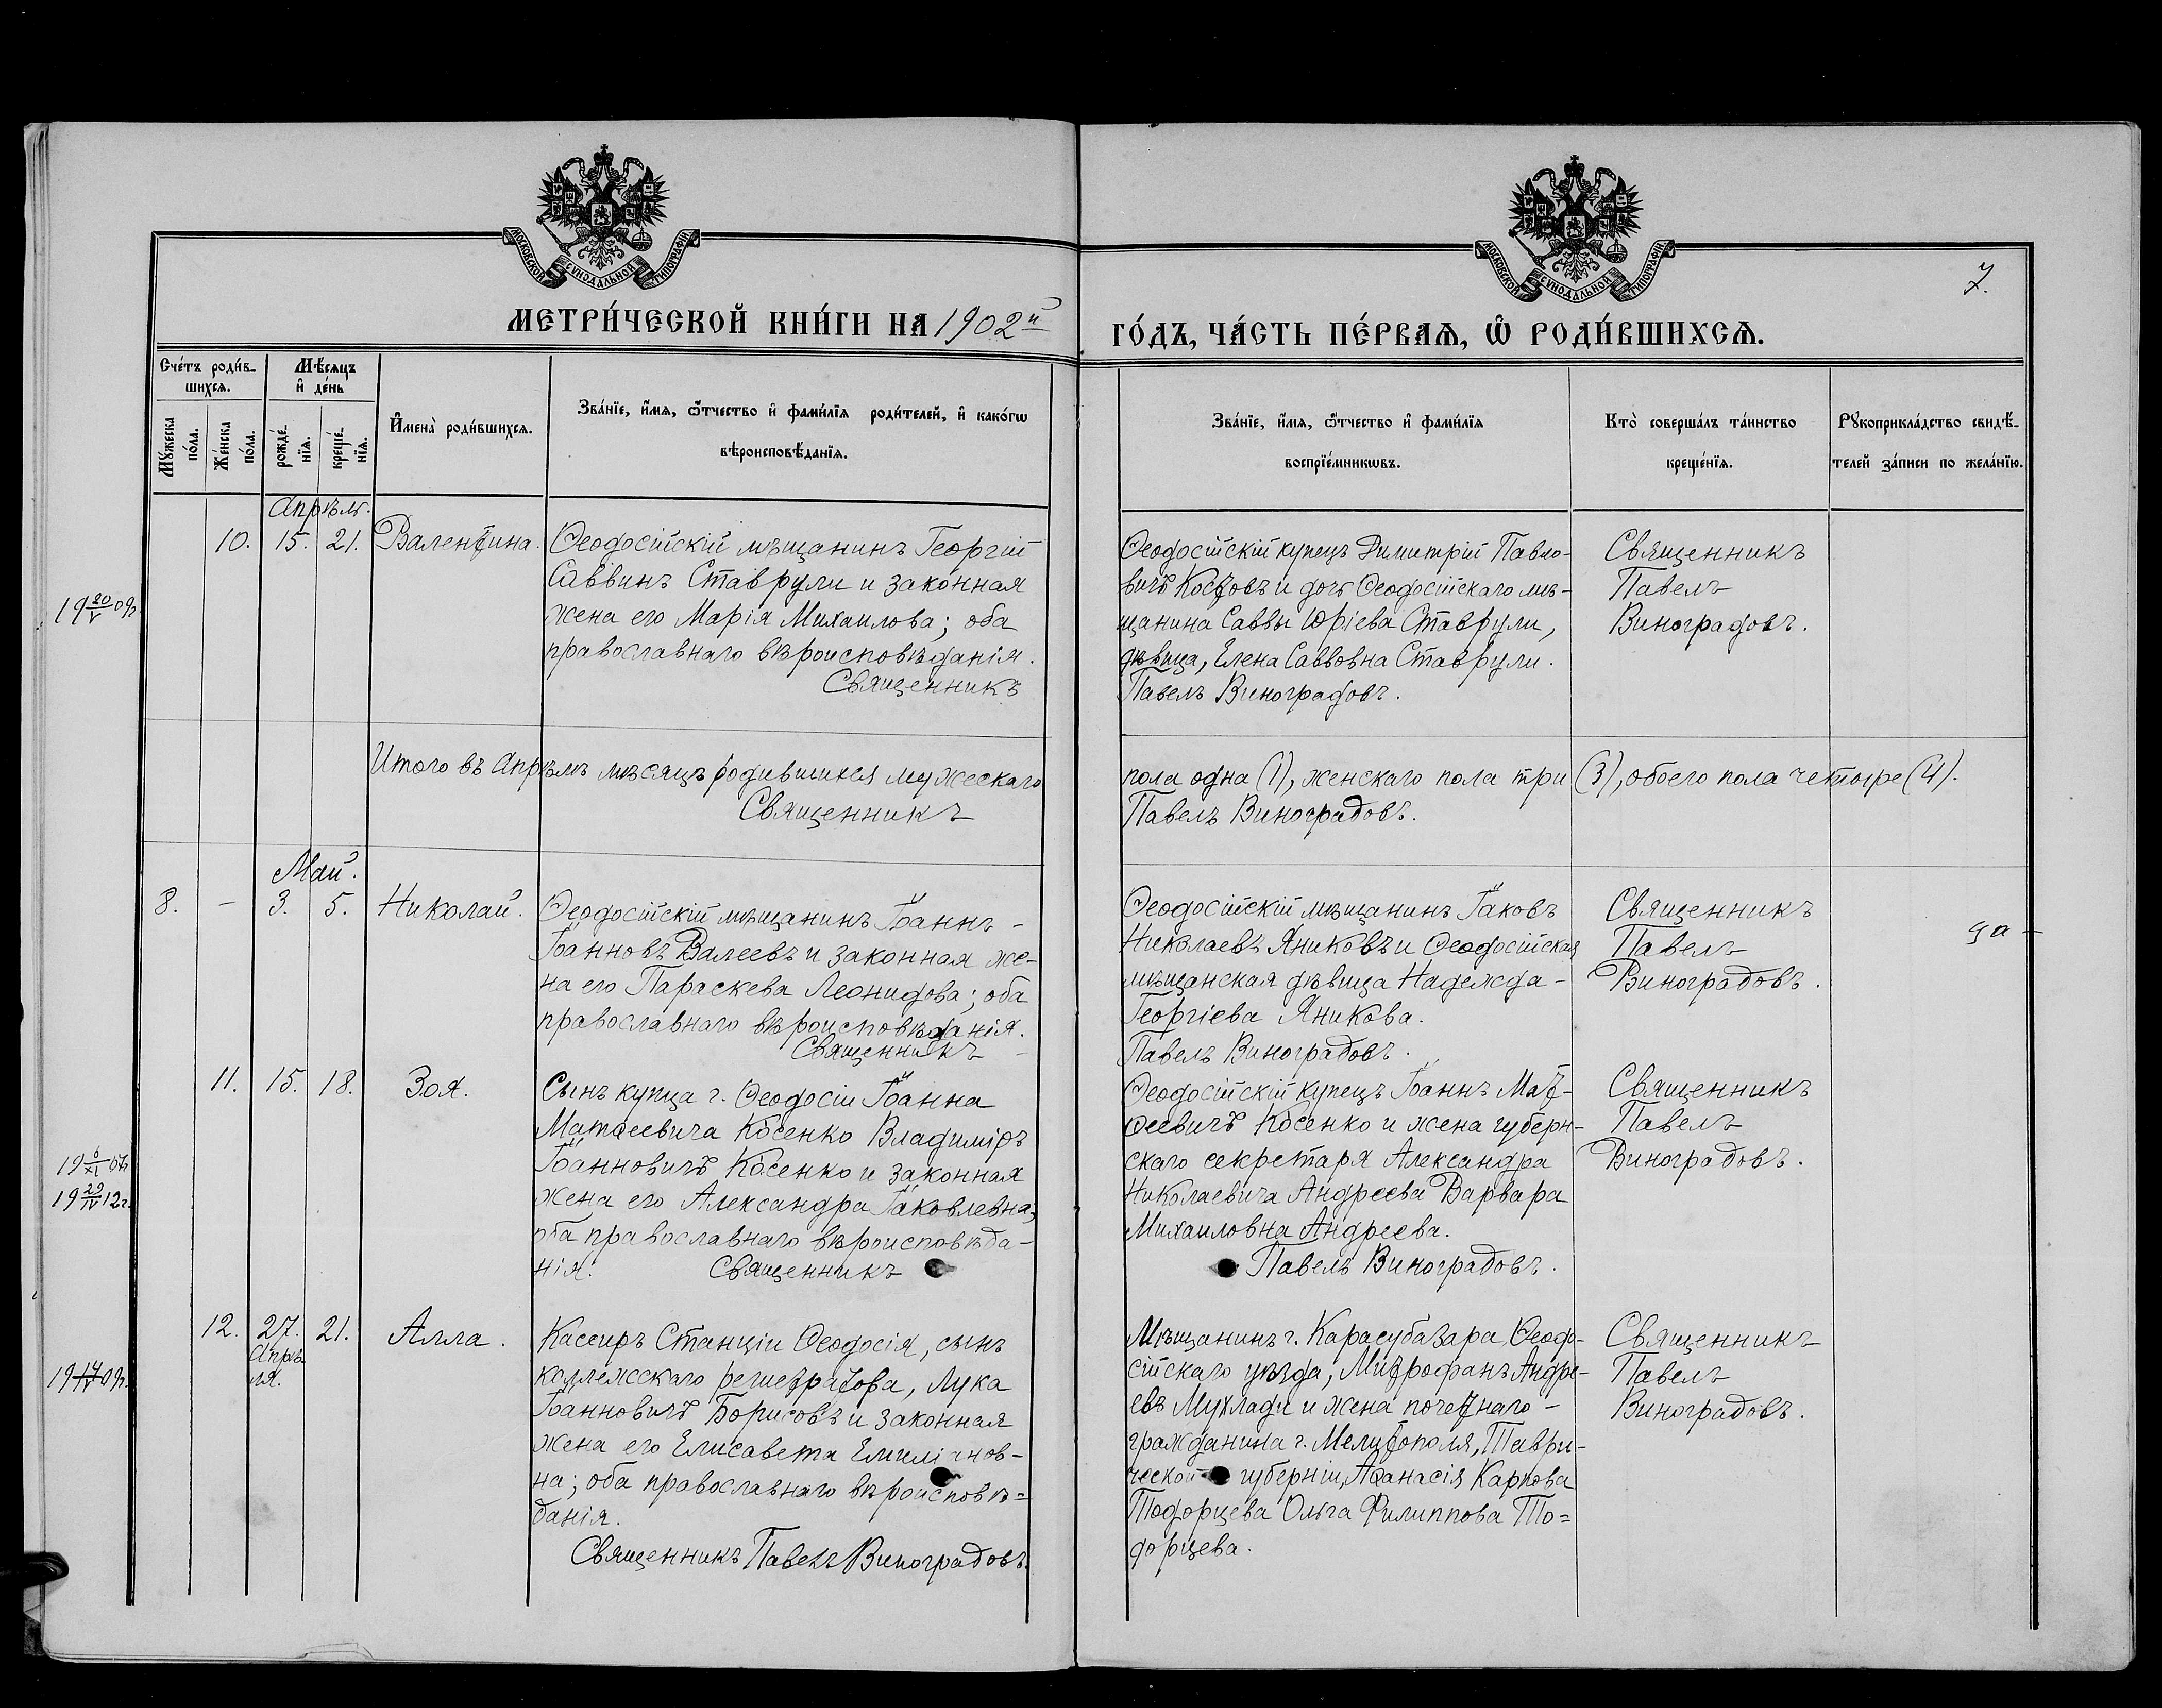 МОСКОВСКОЙ СѴНОДАЛЬНОЙ ТИПОГРАФІИ
МОСКОВСКОЙ СѴНОДАЛЬНОЙ ТИПОГРАФІИ
7.
МЕТРИ́ЧЕСКОЙ КНИ́ГИ НА 1902й
ГО́ДЪ, ЧА́СТЬ ПЕ́РВАѦ, Ѡ҆ РОДИ́ВШИХСѦ.
Сче́тъ роди́в-
шихся.
Мѣ́сяцъ
и҆ де́нь
Мꙋ́жеска
по́ла.
Же́нска
по́ла.
рожде́-
нїя.
креще́-
нїя.
И҆мена̀ роди́вшихся.
Зва́нїе, и҆́мя, ѻ҆́тчество и҆ фами́лїя роди́телей, и҆ како́гѡ
вѣроисповѣ́данїя.
Зва́нїе, и҆́мя, ѻ҆́тчество и҆ фами́лїя
воспрїе́мникѡвъ.
Кто̀ соверша́лъ та́инство
креще́нїя.
Рꙋкоприкла́дство свидѣ́-
телей за́писи по жела́нїю.
Апрѣль.
10. 15. 21. Валентина.
Ѳеодосійскій мѣщанинъ Георгій
Саввинъ Ставрули и законная
жена его Марія Михаилова; оба
православнаго вѣроисповѣданія.
Священникъ
Ѳеодосійскій купецъ Димитрій Павло-
вичъ Костовъ и дочь Ѳеодосійскаго мѣ-
щанина Саввы Юріева Ставрули,
дѣвица, Елена Саввовна Ставрули.
Павелъ Виноградовъ.
Священникъ
Павелъ
Виноградовъ.
19 20/V 09г.
Итого въ Апрѣлѣ мѣсяцѣ родившихся мужескаго
пола одна (1), женскаго пола три (3), обоего пола четыре (4).
Священникъ
Павелъ Виноградовъ.
Май.
8. – 3. 5. Николай.
Ѳеодосійскій мѣщанинъ Іоаннъ -
Іоанновъ Валеевъ и законная же-
на его Параскева Леонидова; оба
православнаго вѣроисповѣданія.
Священникъ
Ѳеодосійскій мѣщанинъ Іаковъ
Николаевъ Яниковъ и Ѳеодосійская
мѣщанская дѣвица Надежда -
Георгіева Яникова.
Павелъ Виноградовъ.
Священникъ
Павелъ
Виноградовъ.
11. 15. 18. Зоя.
Сынъ купца г. Ѳеодосіи Іоанна
Матѳеевича Косенко Владиміръ
Іоанновичъ Косенко и законная
жена его Александра Іаковлевна;
оба православнаго вѣроисповѣда-
нія. Священникъ
Ѳеодосійскій купецъ Іоаннъ Мат-
ѳеевичъ Косенко и жена губерн-
скаго секретаря Александра
Николаевича Андреева Варвара
Михаиловна Андреева.
Павелъ Виноградовъ.
Священникъ
Павелъ
Виноградовъ.
19 6/XI 07г
19 29/IV 12г.
12. 27. 21. Алла.
Апрѣ-
ля.
Кассиръ Станціи Ѳеодосія, сынъ
коллежскаго регистратова, Лука
Іоанновичъ Борисовъ и законная
жена его Елисавета Емиліанов-
на; оба православнаго вѣроисповѣ=
данія.
Священникъ Павелъ Виноградовъ.
Мѣщанинъ г. Карасубазара, Ѳеодо-
сійскаго уѣзда, Митрофанъ Андре-
евъ Мухлади и жена почетнаго -
гражданина г. Мелитополя, Таври-
ческой губерніи, Аѳанасія Карпова
Тодорцева Ольга Филиппова То=
дорцева.
Священникъ
Павелъ
Виноградовъ.